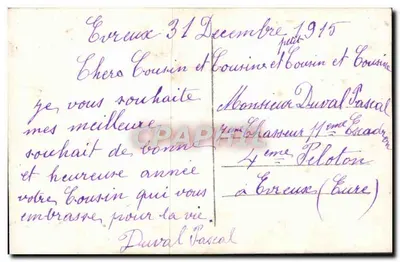 Evreux 31 Decembre 1915
Chers Cousin et Cousine et petit Cousin et Cousine
je vous souhaite
mes meilleure
souhait de bonne
et heureuse année
votre Cousin qui vous
embrasse pour la vie.
Duval Pascal
Monsieur Duval Pascal
Chasseur 11eme Escadron
4eme Peloton
à Evreux (Eure)